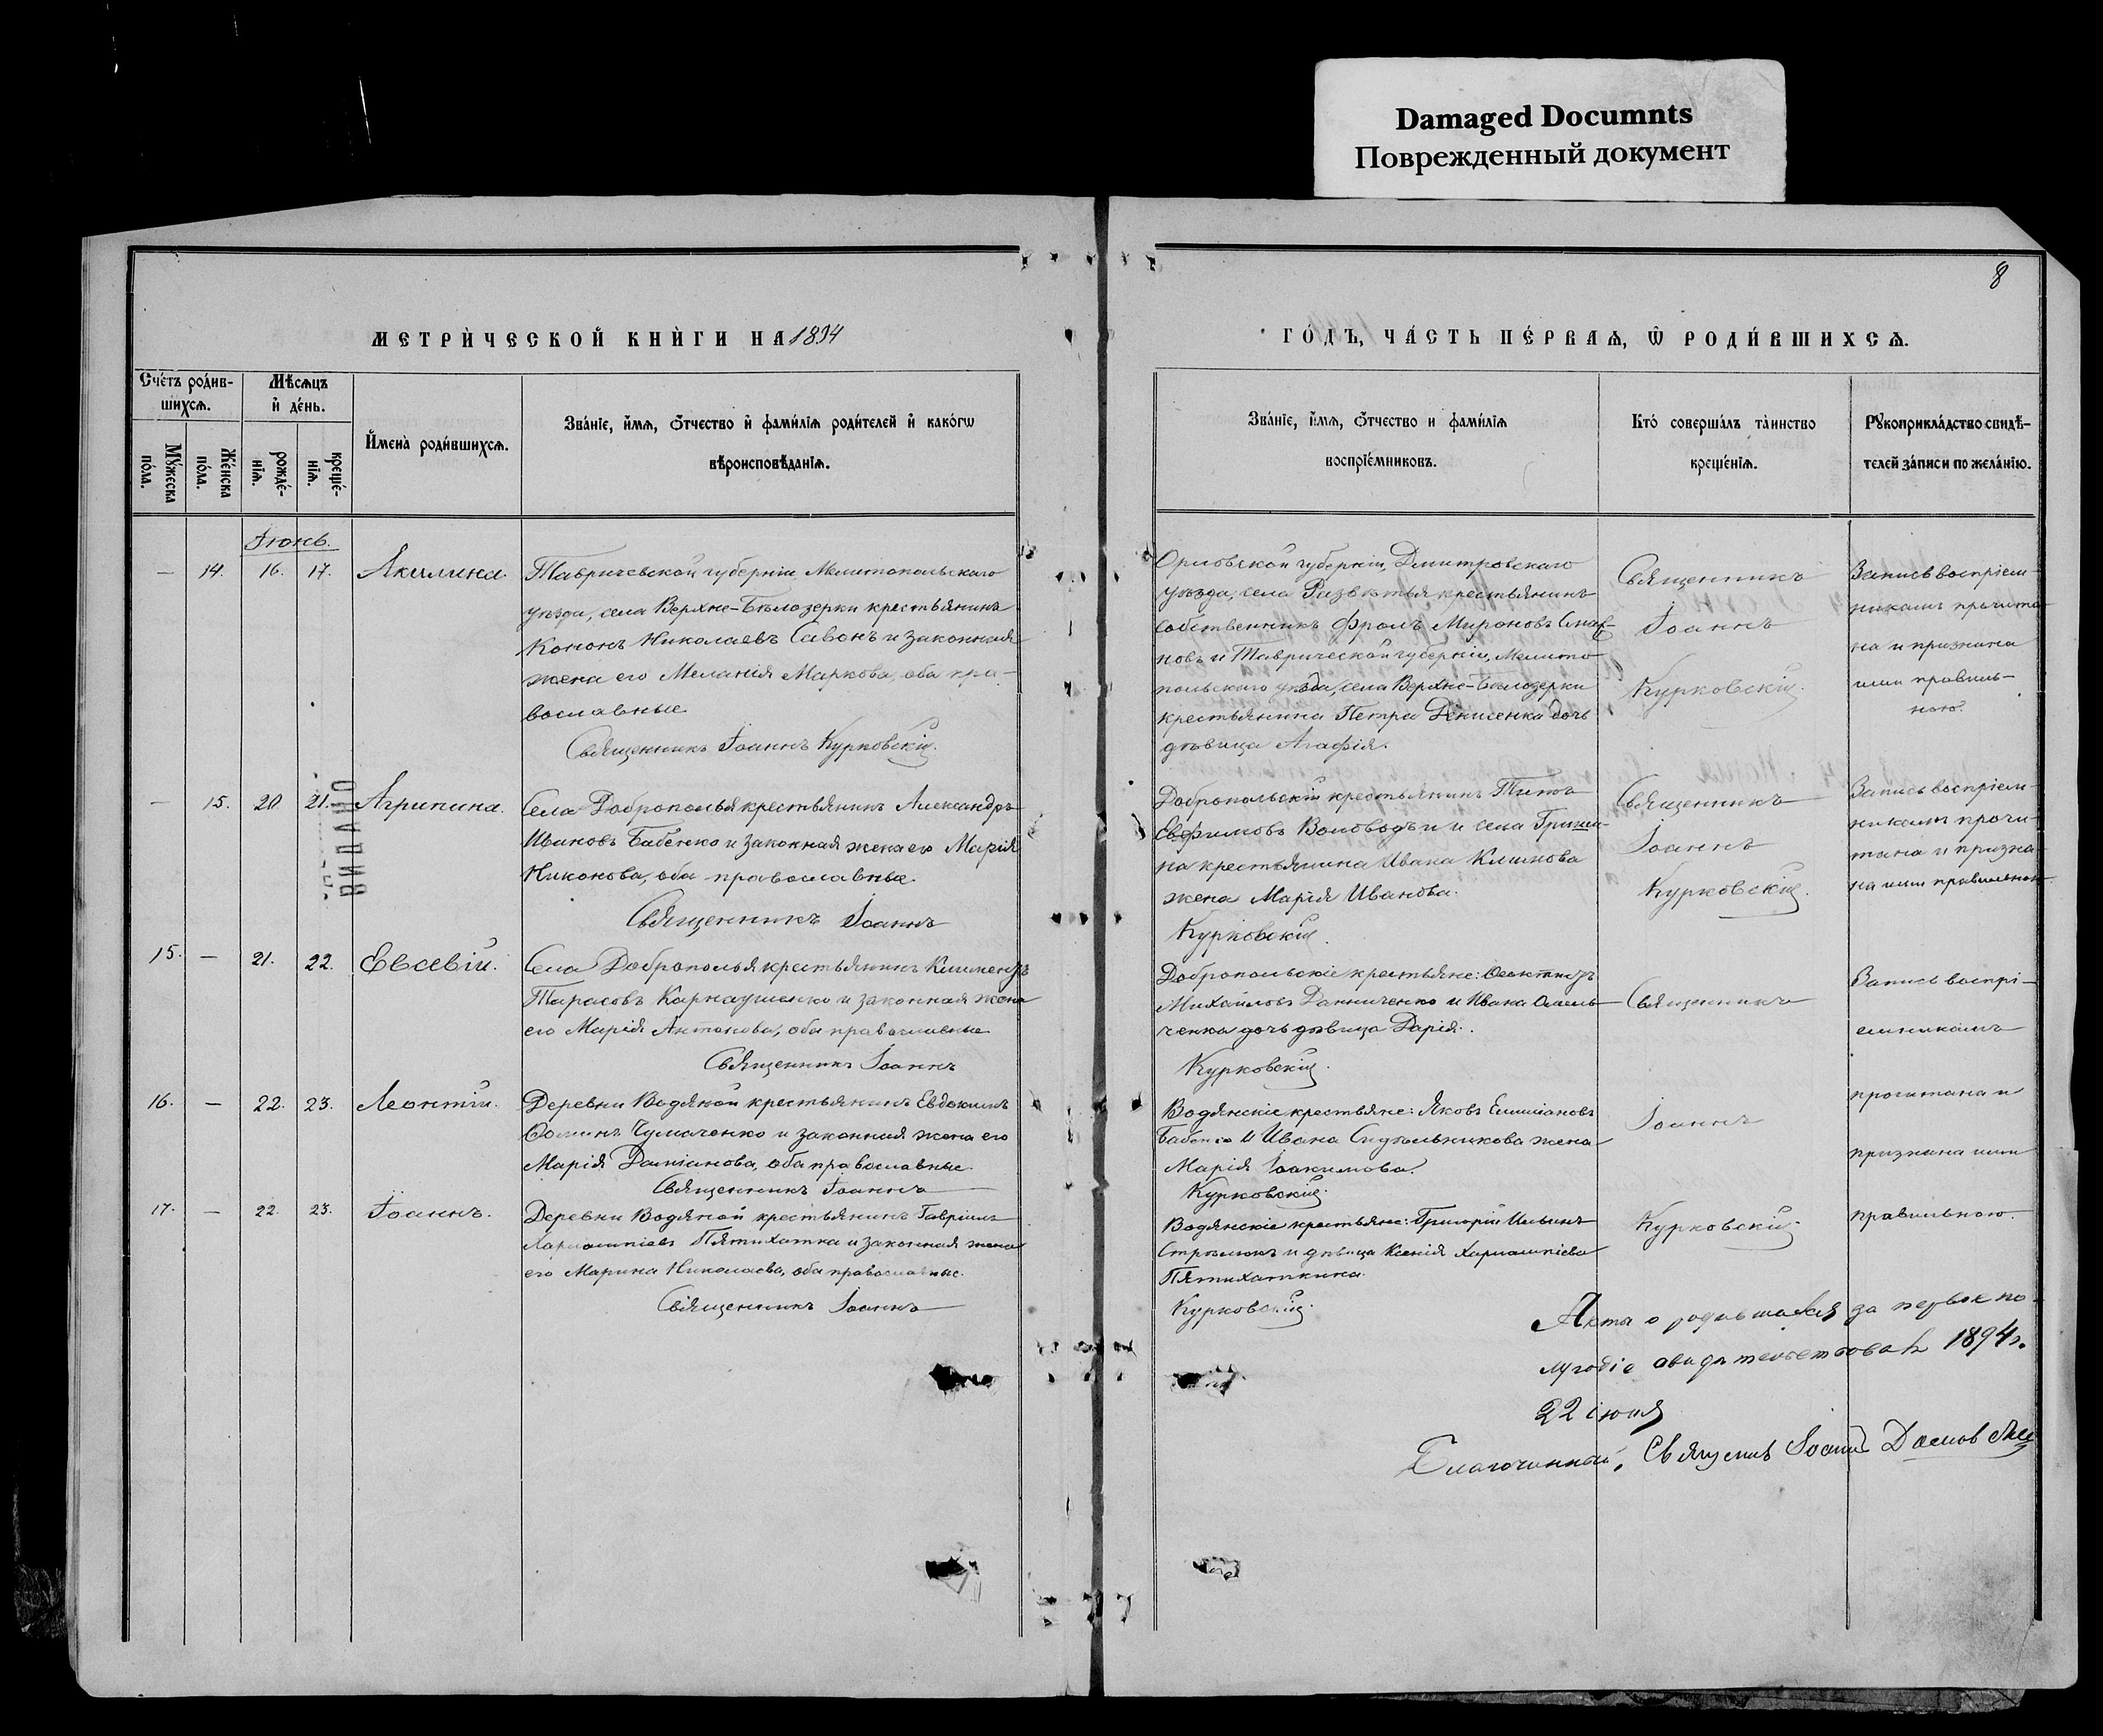 Damaged Documnts
Поврежденный документ
8
МЕТРИ́ЧЕСКОЙ КНИ́ГИ НА 1894
ГО́ДЪ, ЧА́СТЬ ПЕ́РВАѦ, Ѿ РОДИ́ВШИХСѦ.
Сче́тъ роди́в-
шихсѧ.
Мѣсѧцъ
и҆ де́нь.
Мꙋ́жеска
по́ла.
Же́нска
по́ла.
рожде́-
нїѧ.
креще́-
нїѧ.
И҆мена̀ роди́вшихсѧ.
Зва́нїе, и҆́мѧ, ѻ҆́тчество и҆ фами́лїѧ роди́телей и҆ како́гѡ
вѣроисповѣ́данїѧ.
Зва́нїе, и҆́мѧ, ѻ҆́тчество и фами́лїѧ
воспрїе́мниковъ.
Кто́ соверша́лъ та̀инство
креще́нїѧ.
Рꙋкоприкла́дство свидѣ́-
телей за́писи по жела́нїю.
Іюнь.
— 14. 16. 17. Акилина.
Таврической губерніи, Мелитопольскаго
уѣзда, села Верхне-Бѣлозерки крестьянинъ
Кононъ Николаевъ Савонъ и законная
жена его Меланія Маркова, оба пра-
вославные
Священникъ Іоаннъ Курковскій.
Орловской губерніи, Дмитровскаго
уѣзда, села Развѣтья крестьянинъ
собственникъ Фролъ Мироновъ
новъ и Таврической губерніи, Мелито
польскаго уѣзда, села Верхне-Бѣлозерки
крестьянина Петра Денисенка дочь
дѣвица Агафія.
Священникъ
Іоаннъ
Курковскій.
Запись воспріем-
никамъ прочита-
на и признана
ими правиль-
ною.
— 15. 20. 21. Агрипина.
ВИДАНО
Села Доброполья крестьянинъ Александръ
Ивановъ Бабенко и законная жена его Марія
Никонова, оба православные.
Священникъ Іоаннъ
Добропольскій крестьянинъ Титъ
Евфимовъ и села Гриши-
на крестьянина Ивана Климова
жена Марія Иванова.
Курковскій.
Священникъ
Іоаннъ
Курковскій.
Запись воспріем-
никамъ прочи-
тана и призна-
на ими правильною
15. — 21. 22. Евсевій.
Села Доброполья крестьянинъ Климентъ
Тарасовъ Карнаушенко и законная жена
его Марія Антонова, оба православные
Священникъ Іоаннъ
Добропольскіе крестьяне: Ѳеоктистъ
Михайловъ Данниченко и Ивана Омель-
ченка дочь дѣвица Дарія.
Курковскій.
Священникъ
Запись воспрі-
емникамъ
16. — 22. 23. Леонтій.
Деревни Водяной крестьянинъ Евдокимъ
Ѳоминъ Чумаченко и законная жена его
Марія Даміанова, оба православные.
Священникъ Іоаннъ
Водянскіе крестьяне: Яковъ Емиліановъ
Бабенко и Ивана жена
Марія Іоакимова.
Курковскій.
Іоаннъ
прочитана и
признана ими
17. — 22. 23. Іоаннъ.
Деревни Водяной крестьянинъ Гавріилъ
Харлампіевъ Пятихатка и законная жена
его Марина Николаева, оба православные.
Священникъ Іоаннъ
Водянскіе крестьяне: Григорій Ильинъ
и дѣвица Ксенія Харлампіева
Пятихаткина.
Курковскій.
Курковскій.
правильною.
Акты о родившихся за первое по-
лугодіе 1894 г.
22 іюля
Благочинный, Священникъ Іоаннъ